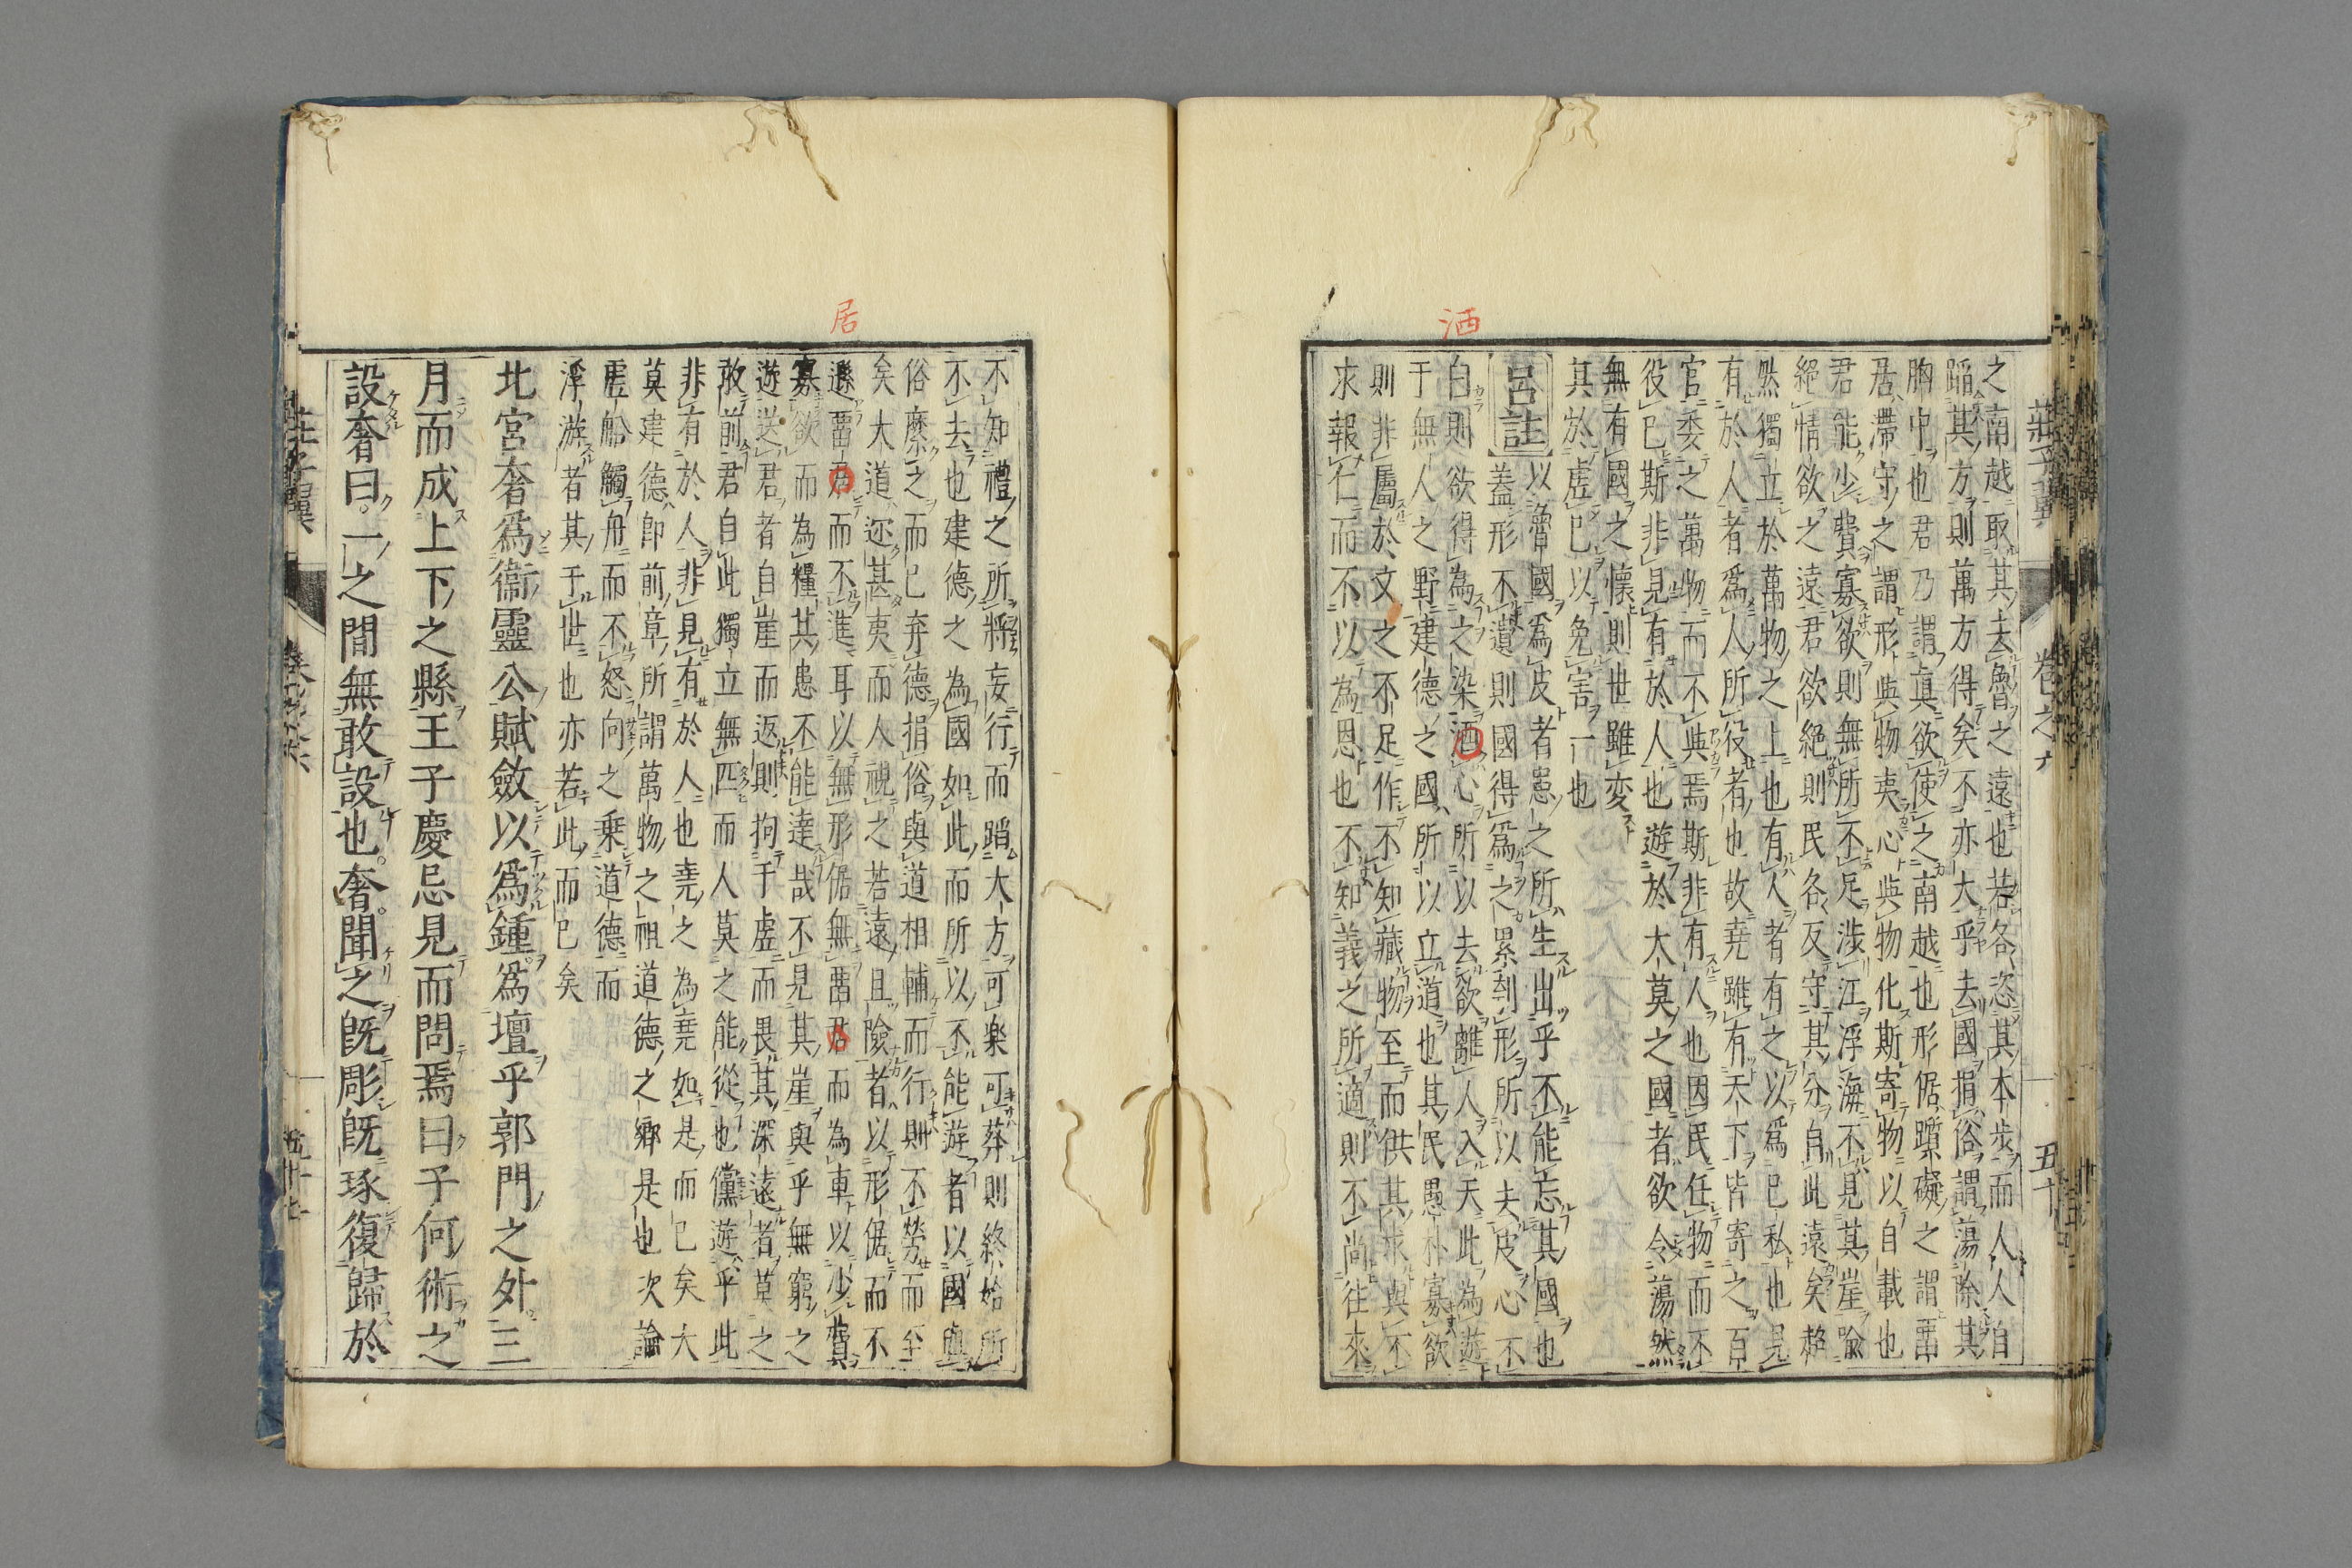 洒
之南越取其去魯之遠也若各恣其本步而人人自
蹈其方則萬方得矣不亦大乎去國捐俗謂蕩除其
胸中也君乃謂眞欲使之南越也形倨躓礙之謂畱
居滯守之謂形與物夷心與物化斯寄物以自載也
君能少費寡欲則無所不足涉江浮海不見其崖喻
絕情欲之遠君欲絕則民各反守其分自此遠矣超
然獨立於萬物之上也有人者有之以爲己私也見
有於人者爲人所役者也故堯雖有天下皆寄之百
官委之萬物而不與焉斯非有人也因民任物而不
役己斯非見有於人也遊於大莫之國者欲令蕩然
無有國之懷則世雖変
其於虗己以免害一也
呂註 以魯國為皮者患之所生出乎不能忘其國也
蓋形不遺則國得爲之累刳形所以去皮心不
白則欲得為之染酒心所以去欲離人入天此為遊
于無人之野建德之國所以立道也其民愚朴寡欲
則非屬於文之不足作不知藏物至而供其求與不
求報仁而不以為恩也不知義之所適則不尚往來
莊子翼 卷之六 五十
居
不知禮之所將妄行而蹈大方可樂可葬則終始所
不去也建德之為國如此而所以不能游者以國與
俗縻之而已弃德捐俗與道相輔而行則不勞而至
矣大道迩甚夷而人視之若遠且險者以形倨而不
遜畱君而不進耳以無形倨無畱君而為車以少費
寡欲而為糧其患不能達哉不見其崖與乎無窮之
遊送君者自崖而返則拘于虗而畏其深遠者莫之
敢前君自此獨立無匹而人莫之能從也儻遊乎此
非有於人非見有於人也堯之為堯如是而已矣大
莫建德即前章所謂萬物之祖道德之鄉是也次論
虗船觸舟而不怒向之乗道德而
浮游者其于世也亦若此而已矣
北宮奢爲衞靈公賦斂以爲鍾爲壇乎郭門之外三
月而成上下之縣王子慶忌見而問焉曰子何術之
設奢曰一之間無敢設也奢聞之既彫既琢復歸於